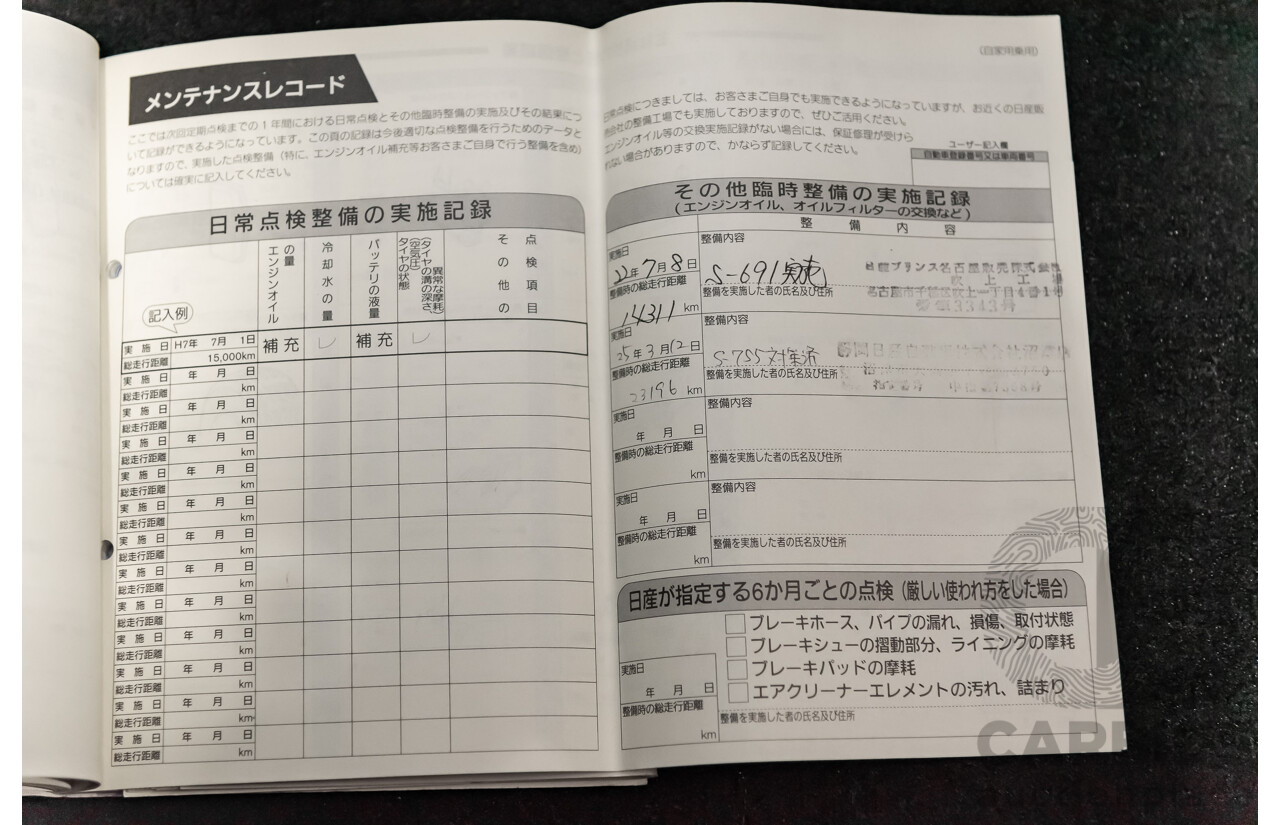 メンテナンスレコード
ここでは次回定期点検までの1年間における日常点検とその他臨時整備の実施及びその結果につ
いて記録ができるようになっています。この頁の記録は今後適切な点検整備を行うためのデータと
なりますので、実施した点検整備(特に、エンジンオイル補充等お客さまご自身で行う整備を含め)
については確実に記入してください。
日常点検整備の実施記録
エンジンオイルの量
冷却水の量
バッテリの液量
タイヤの状態(空気圧)(タイヤの溝の深さ、異常な摩耗)
その他の点検項目
記入例
実施日 H7年 7月 1日 補充 レ 補充 レ
総走行距離 15,000km
実施日 年 月 日
総走行距離 km
実施日 年 月 日
総走行距離 km
実施日 年 月 日
総走行距離 km
実施日 年 月 日
総走行距離 km
実施日 年 月 日
総走行距離 km
実施日 年 月 日
総走行距離 km
実施日 年 月 日
総走行距離 km
実施日 年 月 日
総走行距離 km
実施日 年 月 日
総走行距離 km
実施日 年 月 日
総走行距離 km
実施日 年 月 日
総走行距離 km
実施日 年 月 日
総走行距離 km
(自家用乗用)
日常点検につきましては、お客さまご自身でも実施できるようになっていますが、お近くの日産販
売会社の整備工場でも実施しておりますので、ぜひご活用ください。
エンジンオイル等の交換実施記録がない場合には、保証修理が受けら
れない場合がありますので、かならず記録してください。
ユーザー記入欄
自動車登録番号又は車両番号
その他臨時整備の実施記録
(エンジンオイル、オイルフィルターの交換など)
整備内容
実施日
22年7月8日
整備時の総走行距離
14311 km
整備内容
S-691実施
日産プリンス名古屋販売株式会社
吹上工場
整備を実施した者の氏名及び住所
名古屋市千種区吹上一丁目4番1号
実施日
25年3月12日
整備時の総走行距離
23196 km
整備内容
S-755対策済
整備を実施した者の氏名及び住所
実施日
年 月 日
整備時の総走行距離
km
整備内容
整備を実施した者の氏名及び住所
実施日
年 月 日
整備時の総走行距離
km
整備内容
整備を実施した者の氏名及び住所
日産が指定する6か月ごとの点検(厳しい使われ方をした場合)
ブレーキホース、パイプの漏れ、損傷、取付状態
ブレーキシューの摺動部分、ライニングの摩耗
ブレーキパッドの摩耗
エアクリーナーエレメントの汚れ、詰まり
実施日
年 月 日
整備時の総走行距離
km
整備を実施した者の氏名及び住所